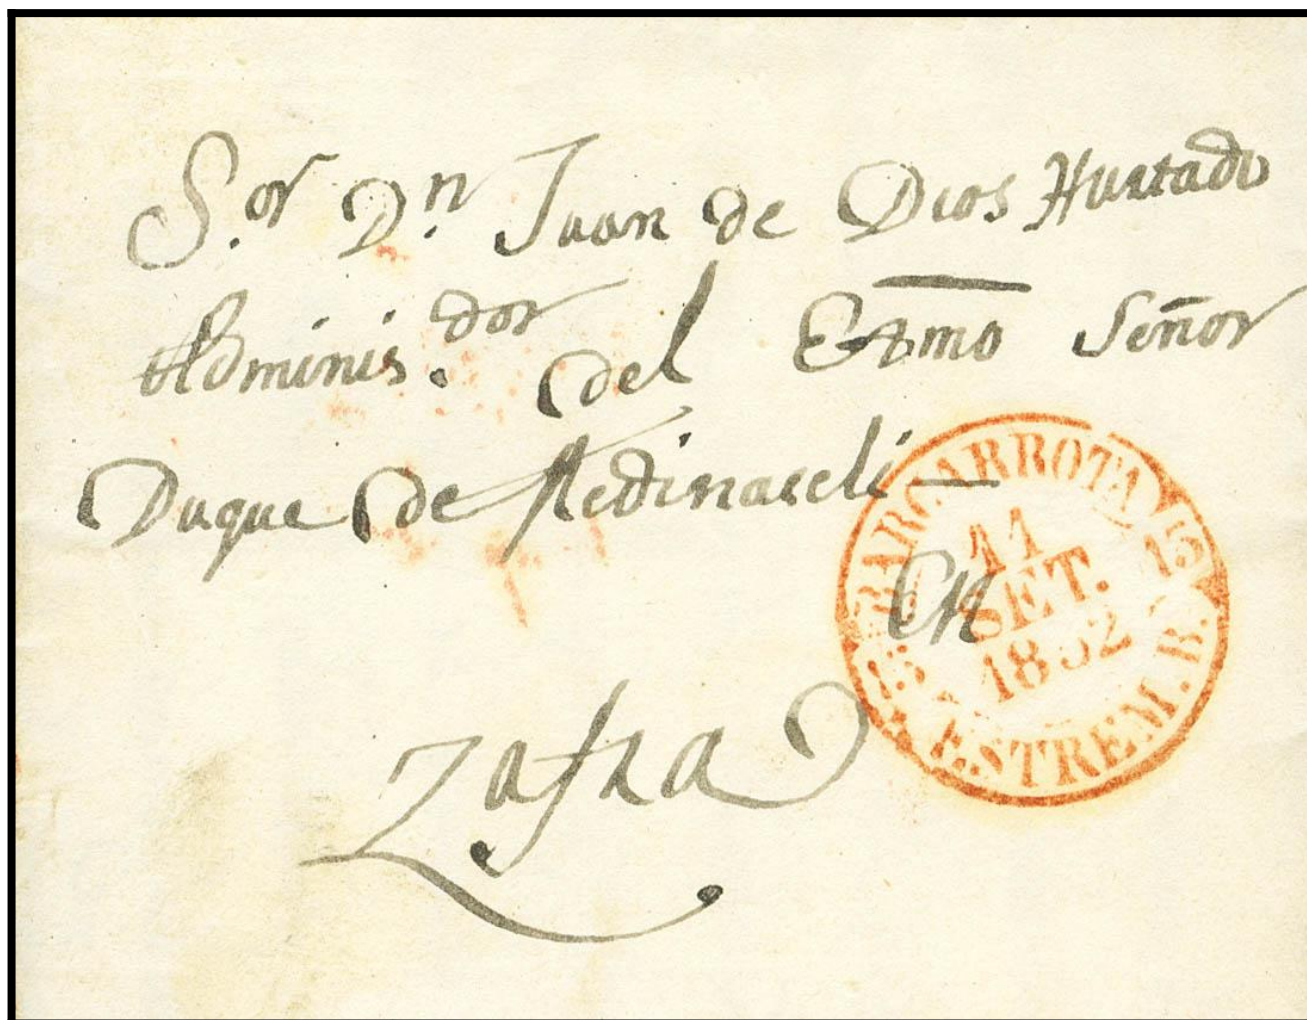 S.or D.n Juan de Dios Hurtado
Adminis.dor del Exmo Señor
Duque de Medinaceli
En
Zafra
BARCARROTA 15
11
SET.
1852
ESTREM. B.